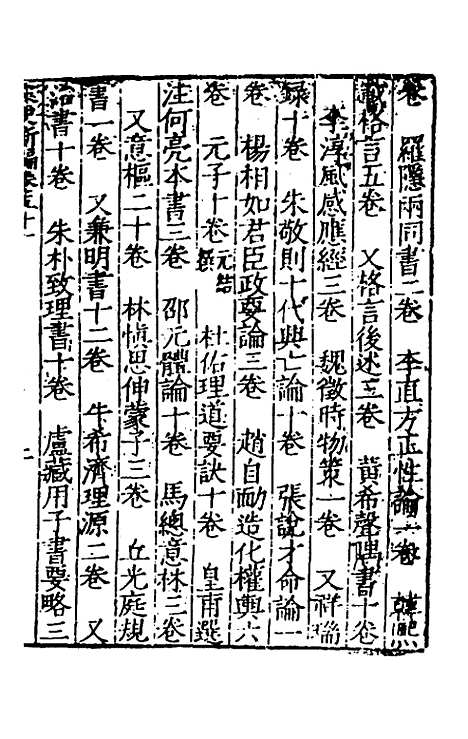 卷　羅隱兩同書二卷　李直方正性論一卷　韓熙
載格言五卷　又格言後述三卷　黃希聲隅書十卷
李淳風感應經三卷　魏徵時物策一卷　又祥瑞
録十卷　朱敬則十代興亡論十卷　張説才命論一
卷　楊相如君臣政要論三卷　趙自勔造化權輿六
卷　元子十卷元結撰　杜佑理道要訣十卷　皇甫選
注何亮本書三卷　邵元體論十卷　馬總意林三卷
又意樞二十卷　林慎思伸蒙子三卷　丘光庭規
書一卷　又兼明書十二卷　牛希濟理源二卷　又
治書十卷　朱朴致理書十卷　盧藏用子書要略三
宋史新編卷五十一